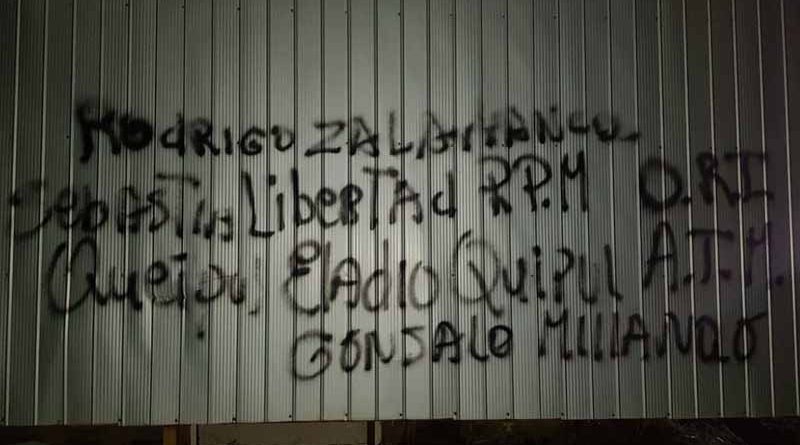 RODRIGO ZALAMANCU
SebASTiAN LibeRTAd R.P.M O.RI
Queipul ElAdIO QUipul A.T.M.
GONSALO MIllANAO